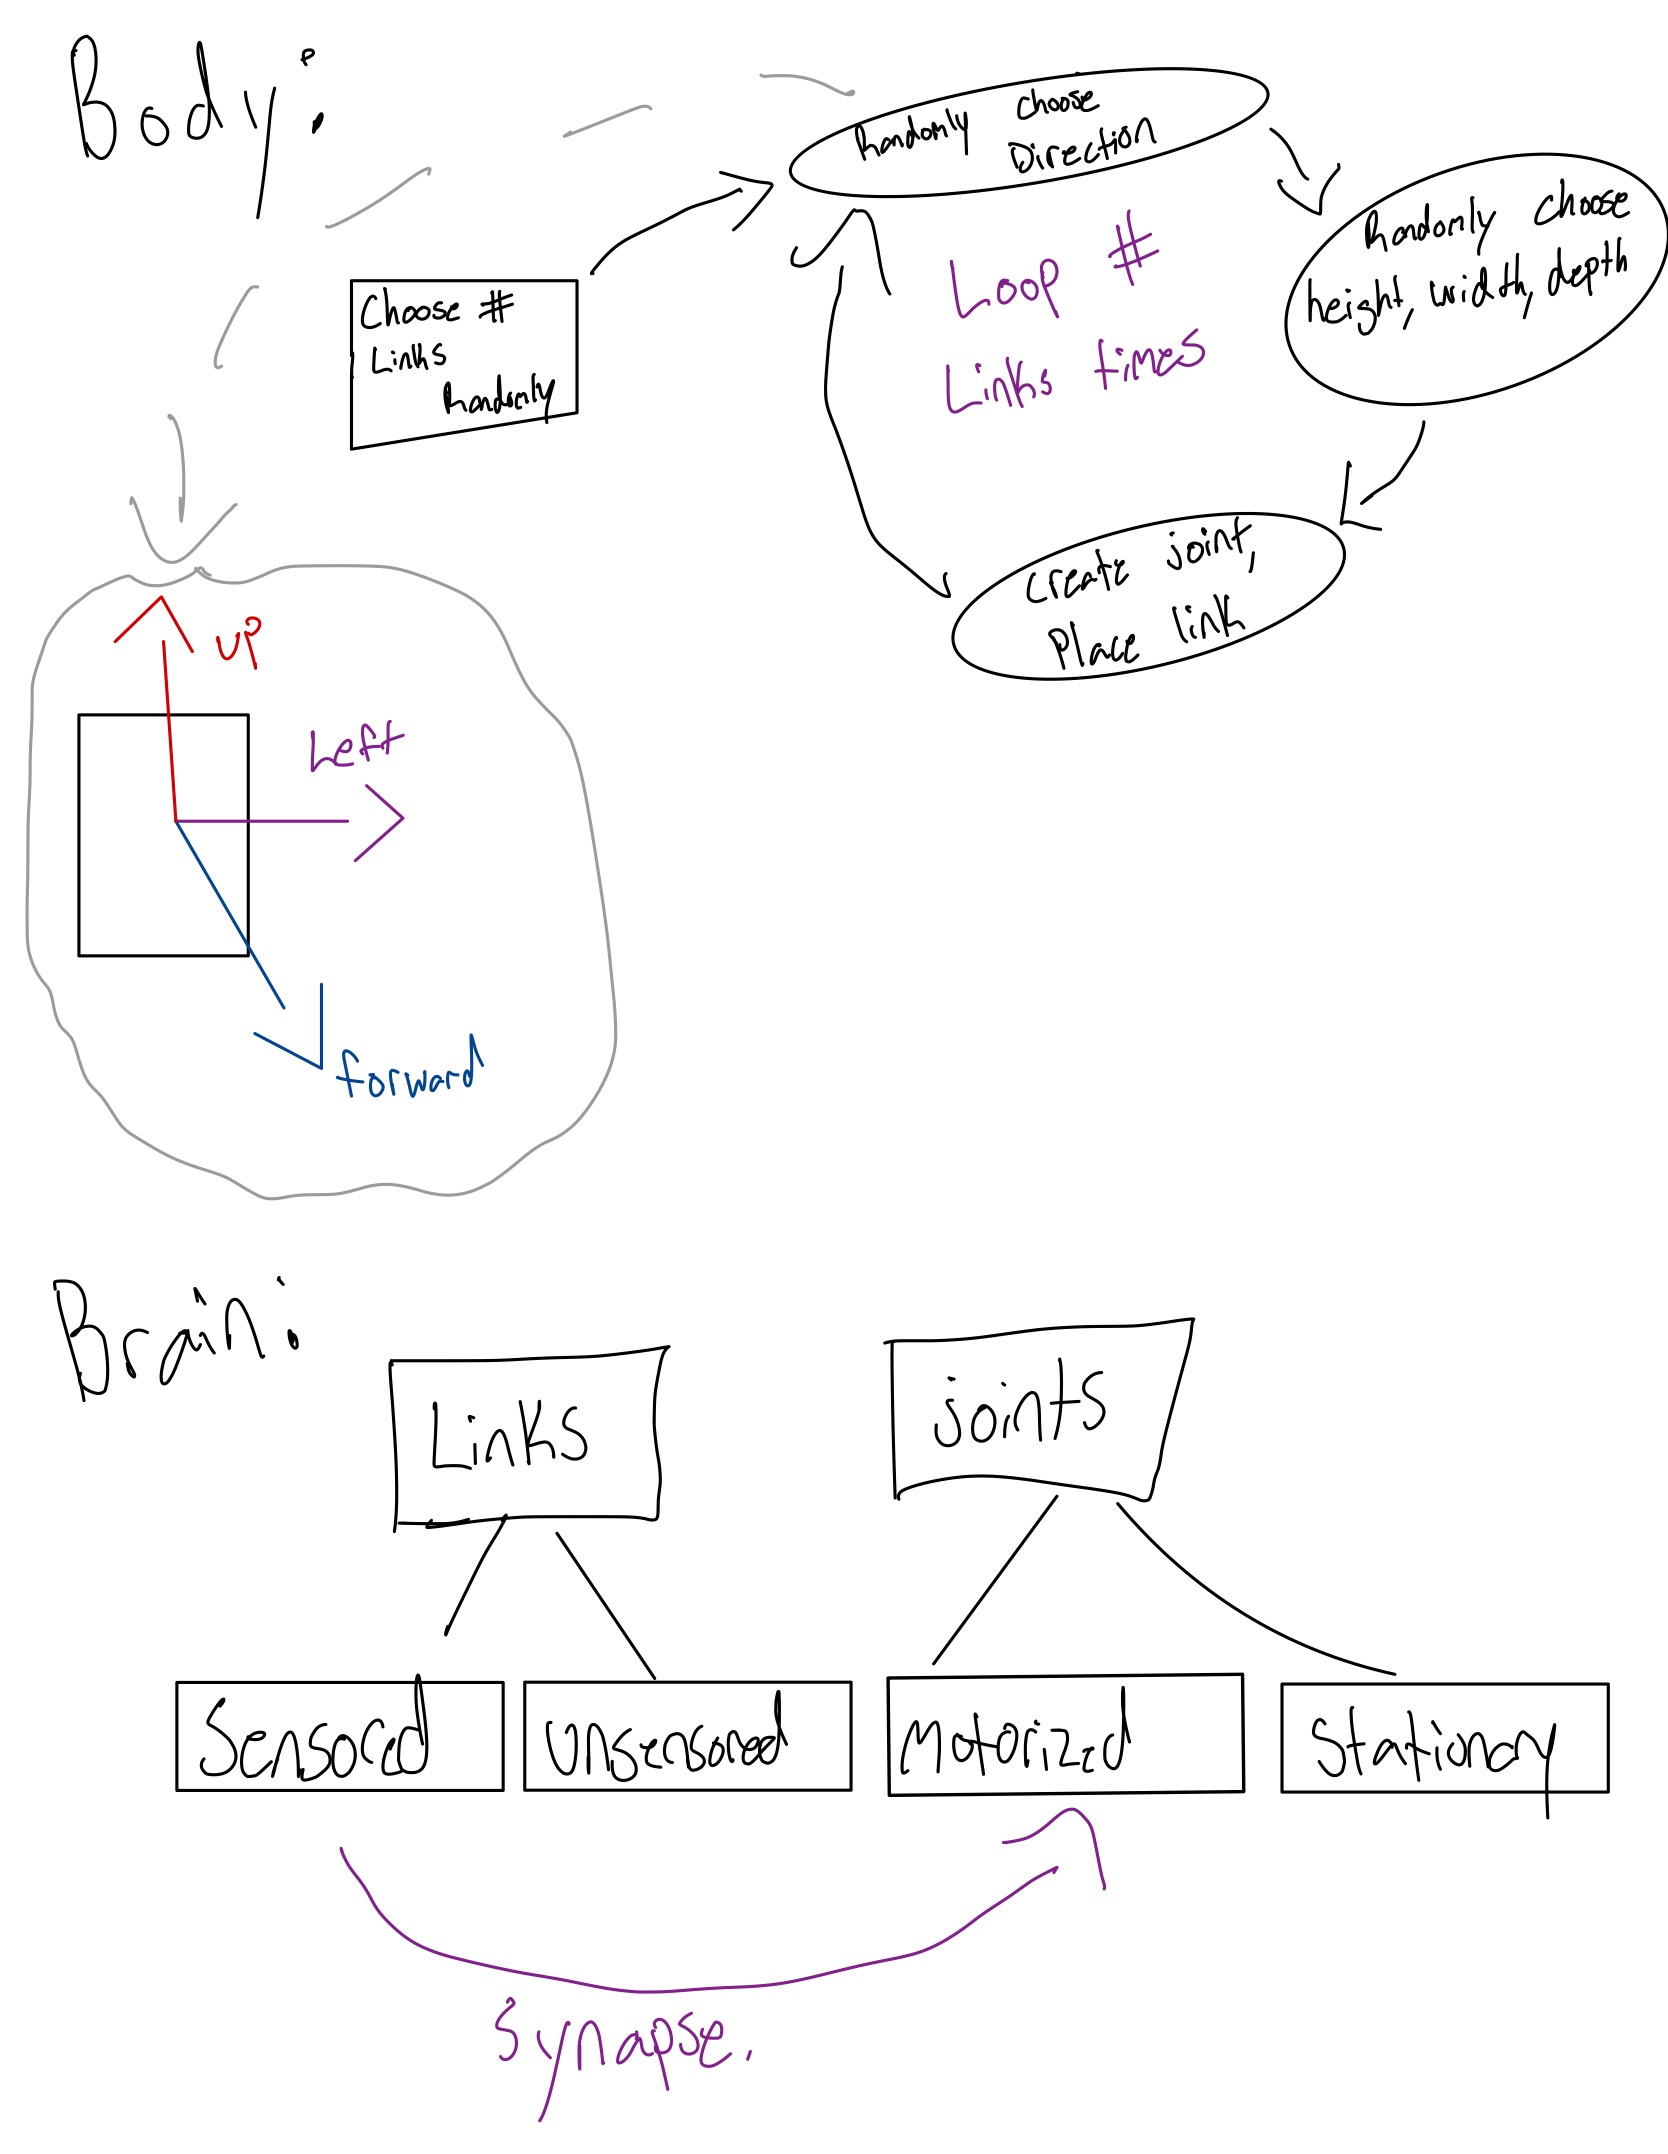 Body:
Randomly choose
Direction
Choose #
Links
Randomly
Loop #
Links times
Randomly choose
height, width, depth
create joint,
Place link
up
Left
forward
Brain:
Links
joints
Sensored
Unsensored
Motorized
Stationary
Synapse.